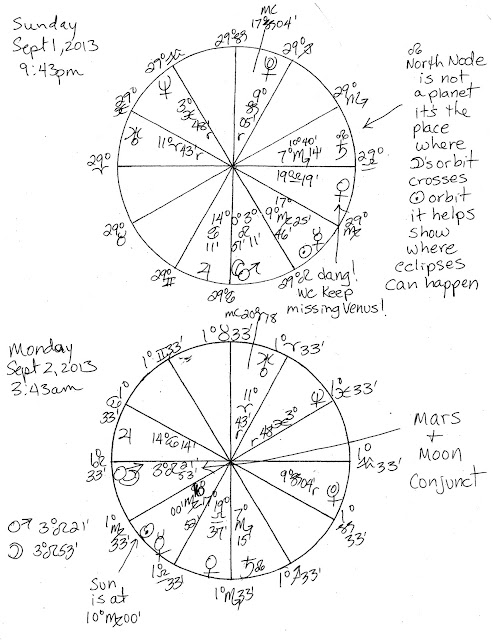 Sunday
Sept 1, 2013
9:43pm
MC
17°♑04'
29°♑
29°♐
29°♏
29°♎
29°♍
29°♌
29°♋
29°♊
29°♉
29°♈
29°♓
29°♒
3°
48'
r
9°
♑
05'
r
11°♈43'
r
10°40'
7°♏14'
19°♎19'
17°
♍25'
9°♍
46'
14°
♋
11'
3°
♌
11'
☊
North Node
is not
a planet
it's the
place
where
☽'s orbit
crosses
☉ orbit
it helps
show
where
eclipses
can happen
dang!
We keep
missing Venus!
Monday
Sept 2, 2013
3:43am
MC 20°♈18
1°♉33'
1°♈33'
1°♓33'
1°♒33'
1°
♑
33'
1°♐33'
1°♏33'
1°
♎
33'
1°
♍
33'
1°
♌
33'
♋1°
33'
1°♊33'
11°
♈
43'
r
r 48' ♓3°
9°♑04'r
14°♋14'
3°♌21'
53'
19°
♎
37'
7°
♏
15'
Mars
+
Moon
Conjunct
♂ 3°♌21'
☽ 3°♌53'
Sun
is at
10°♍00'